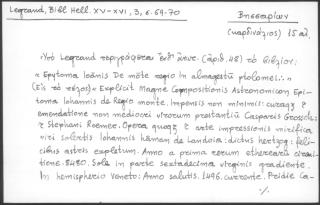 Legrand, Bibl Hell. XV-XVI, 3, σ. 69-70
Βησσαρίων
(καρδινάλιος) 15 αἰ.
Ὑπὸ Legrand περιγράφεται ἐνθ' ἄνωτ. (ἀριθ. 48) τὸ βιβλίον:
« Epytoma Ioānis De mōte regio In almagestū ptolomei. »
(Εἰς τὸ τέλος) « Explicit Magne Compositionis Astronomicon Epi-
toma Iohannis de Regio monte. Impensis non minimis: curaq3 &
emendatione non mediocri virorum prestantiū Casparis Grosch:
& Stephani Roemer. Opera quoq3 & arte impressionis mirifica
viri solertis Iohannis hāman de Landoia: dictus hertzog: feli-
cibus astris expletum. Anno a prima rerum etherearū circui-
tione. 8480. Sole in parte sextadecima virginis gradiente.
In hemisperio Veneto: Anno salutis. 1496. currente. Pridie Ca-
·/.